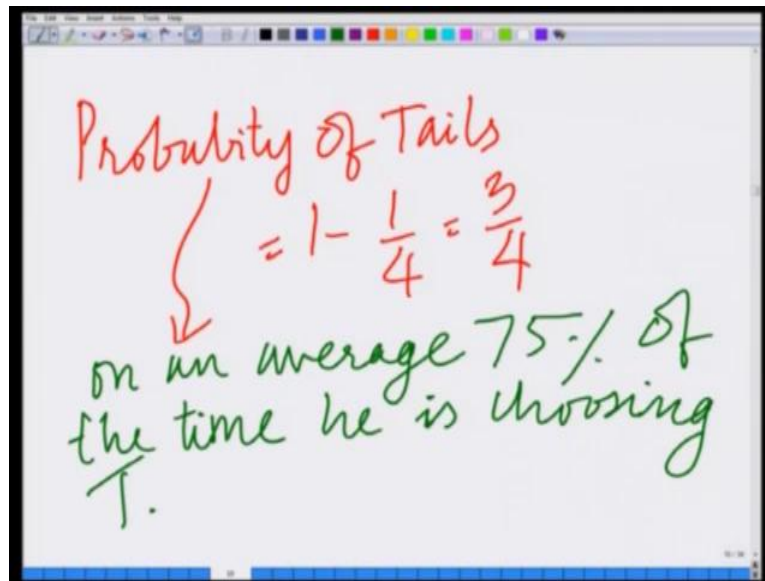 File Edit View Insert Actions Tools Help
Probability of Tails
= 1 - 1/4 = 3/4
on an average 75% of
the time he is choosing
T.